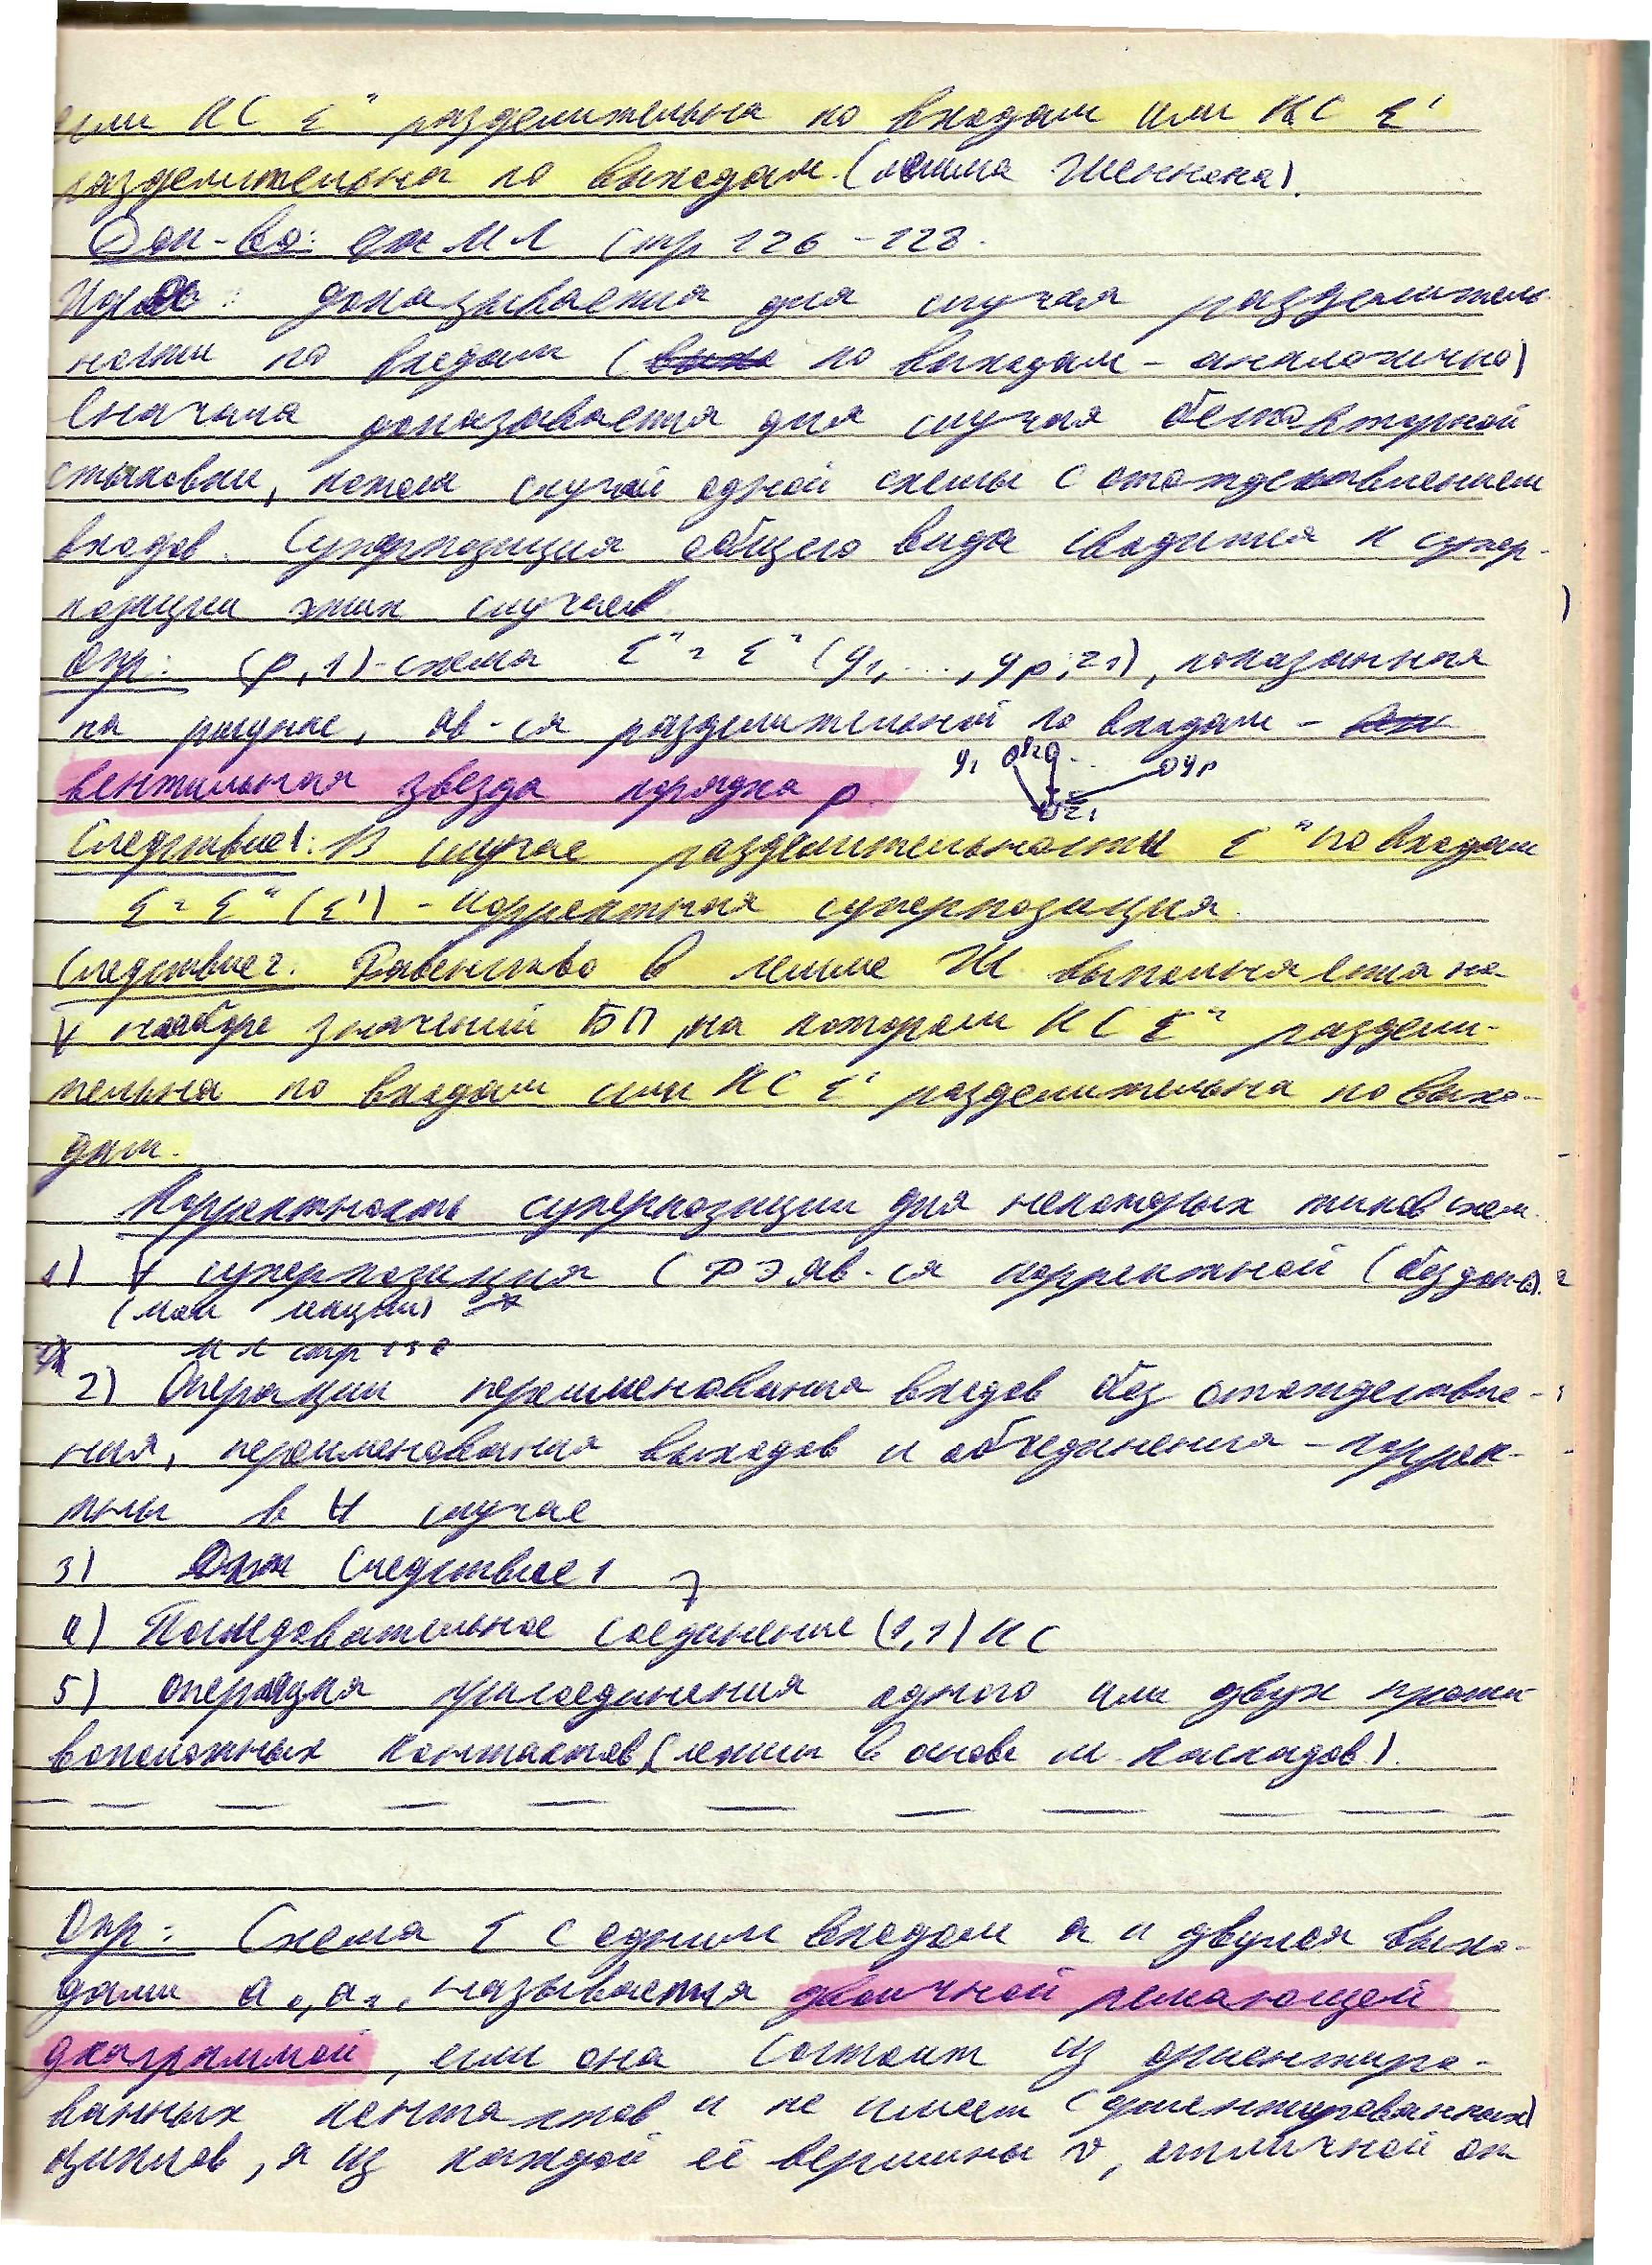 если КС Σ″ разделительна по входам или КС Σ′
разделительна по выходам. (лемма Шеннона).
Док-во: см МЛ стр 126-128.
Идея: доказывается для случая разделитель-
ности по входам (по выходам - аналогично)
Сначала доказывается для случая бесповторной
стыковки, потом случай одной схемы с отождествлением
входов. Суперпозиция общего вида сводится к супер-
позиции этих случаев.
Опр: (p,1)-схема Σ″ = Σ″(y₁, ..., yp; z₁), показанная
на рисунке, яв-ся разделительной по входам -
вентильная звезда порядка p.
y₁ y₂ ... yp
z₁
Следствие1: В случае разделительности Σ″ по входам
Σ = Σ″(Σ′) - корректная суперпозиция.
Следствие2. Равенство в лемме Ш. выполняется на
∀ наборе значений БП, на котором КС Σ″ раздели-
тельна по входам или КС Σ′ разделительна по выхо-
дам.
Корректность суперпозиции для некоторых типов схем.
1) ∀ суперпозиция СФЭ яв-ся корректной (без док-ва).
МЛ стр 130
2) Операции переименования входов без отождествле-
ния, переименования выходов и объединения - коррек-
тны в ∀ случае
3) Следствие 1
4) Последовательное соединение (1,1) КС
5) операция присоединения одного или двух проти
воположных контактов (лежит в основе м. каскадов).
Опр: Схема Σ с одним входом a и двумя выхо-
дами a₀, a₁, называется двоичной решающей
диаграммой, если она состоит из ориентиро-
ванных контактов и не имеет (ориентированных)
циклов, а из каждой её вершины v, отличной от